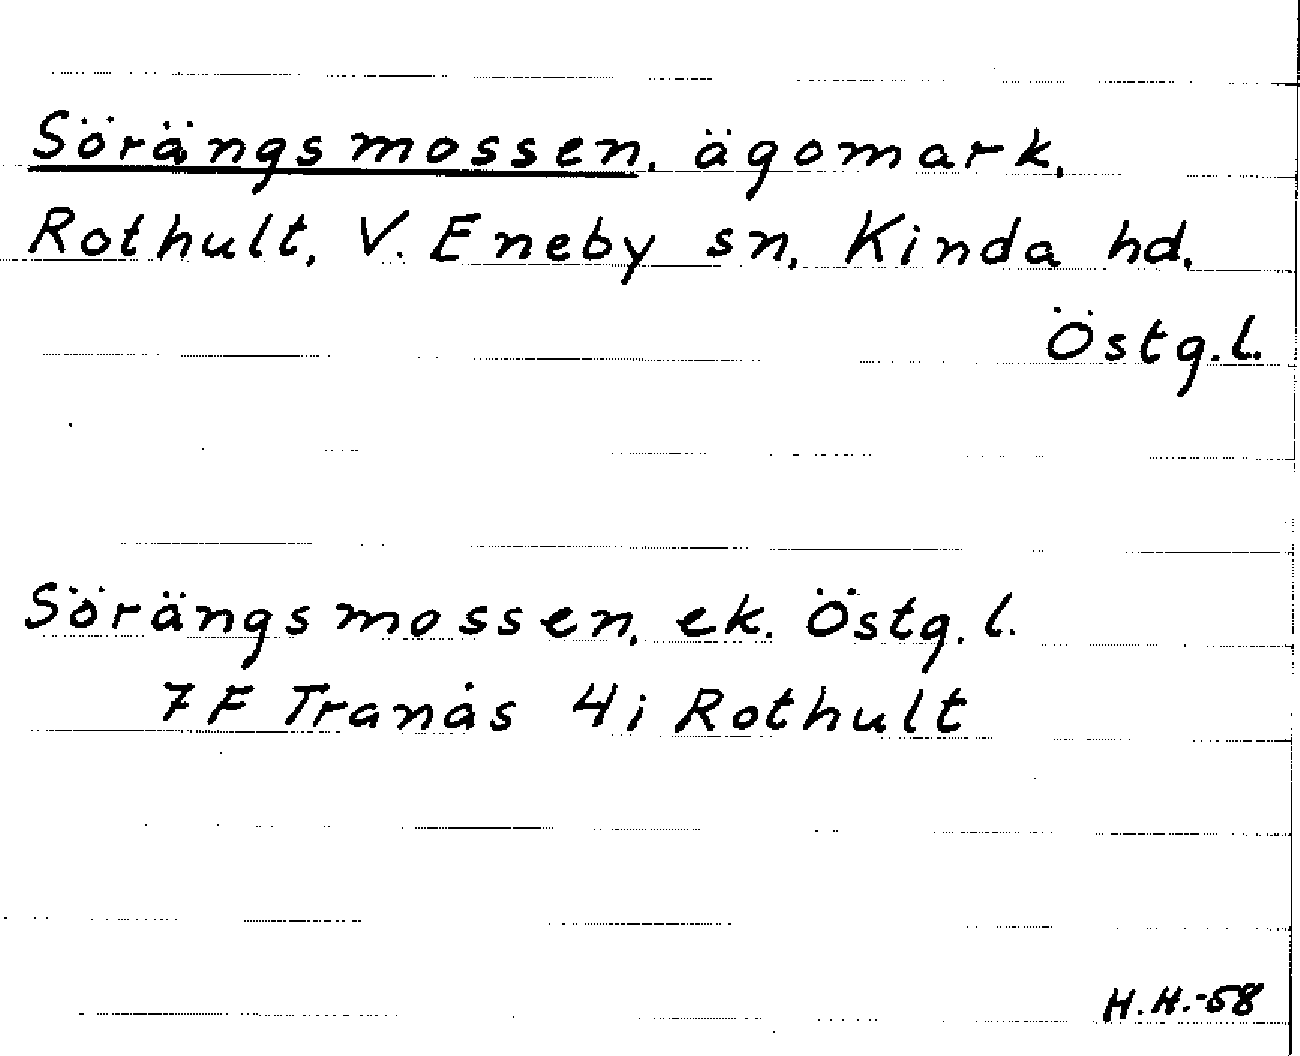 Sörängsmossen, ägomark,
Rothult, V. Eneby sn, Kinda hd.
Östg.l.
Sörängsmossen, ek. Östg.l.
7 F Tranås 4i Rothult
H.H.-58